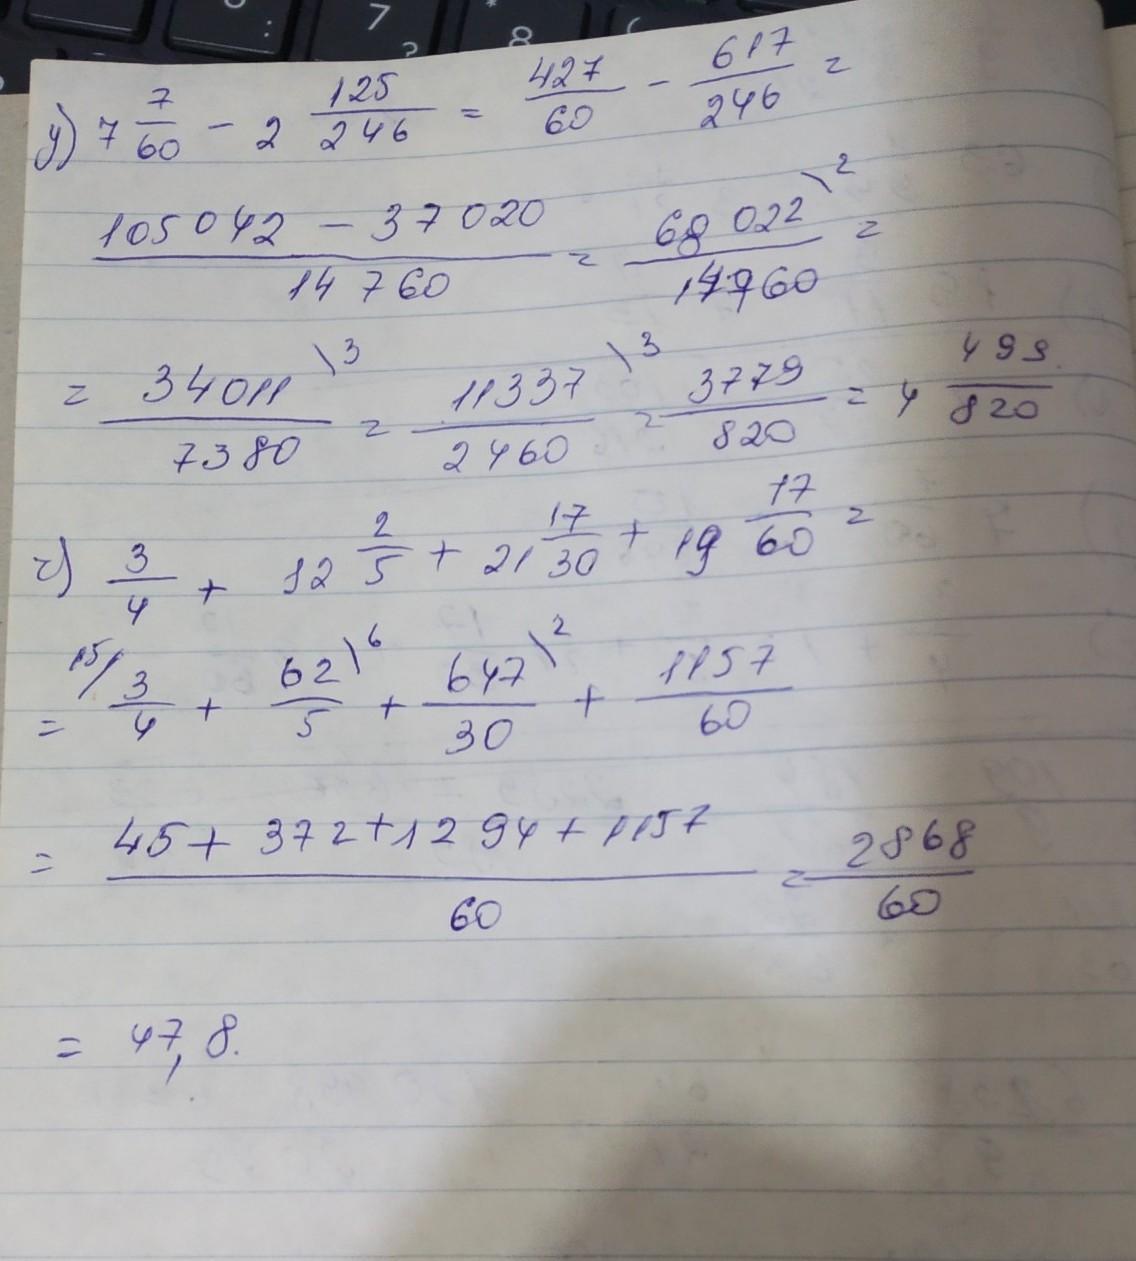 у) 7 7/60 - 2 125/246 = 427/60 - 617/246 =
105042 - 37020/14760 = 68022\2/14760 =
= 34011\3/7380 = 11337\3/2460 = 3779/820 = 4 499/820
г) 3/4 + 12 2/5 + 21 17/30 + 19 17/60 =
= 15/3/4 + 62\6/5 + 647\2/30 + 1157/60
= 45 + 372 + 1294 + 1157/60 = 2868/60
= 47,8.